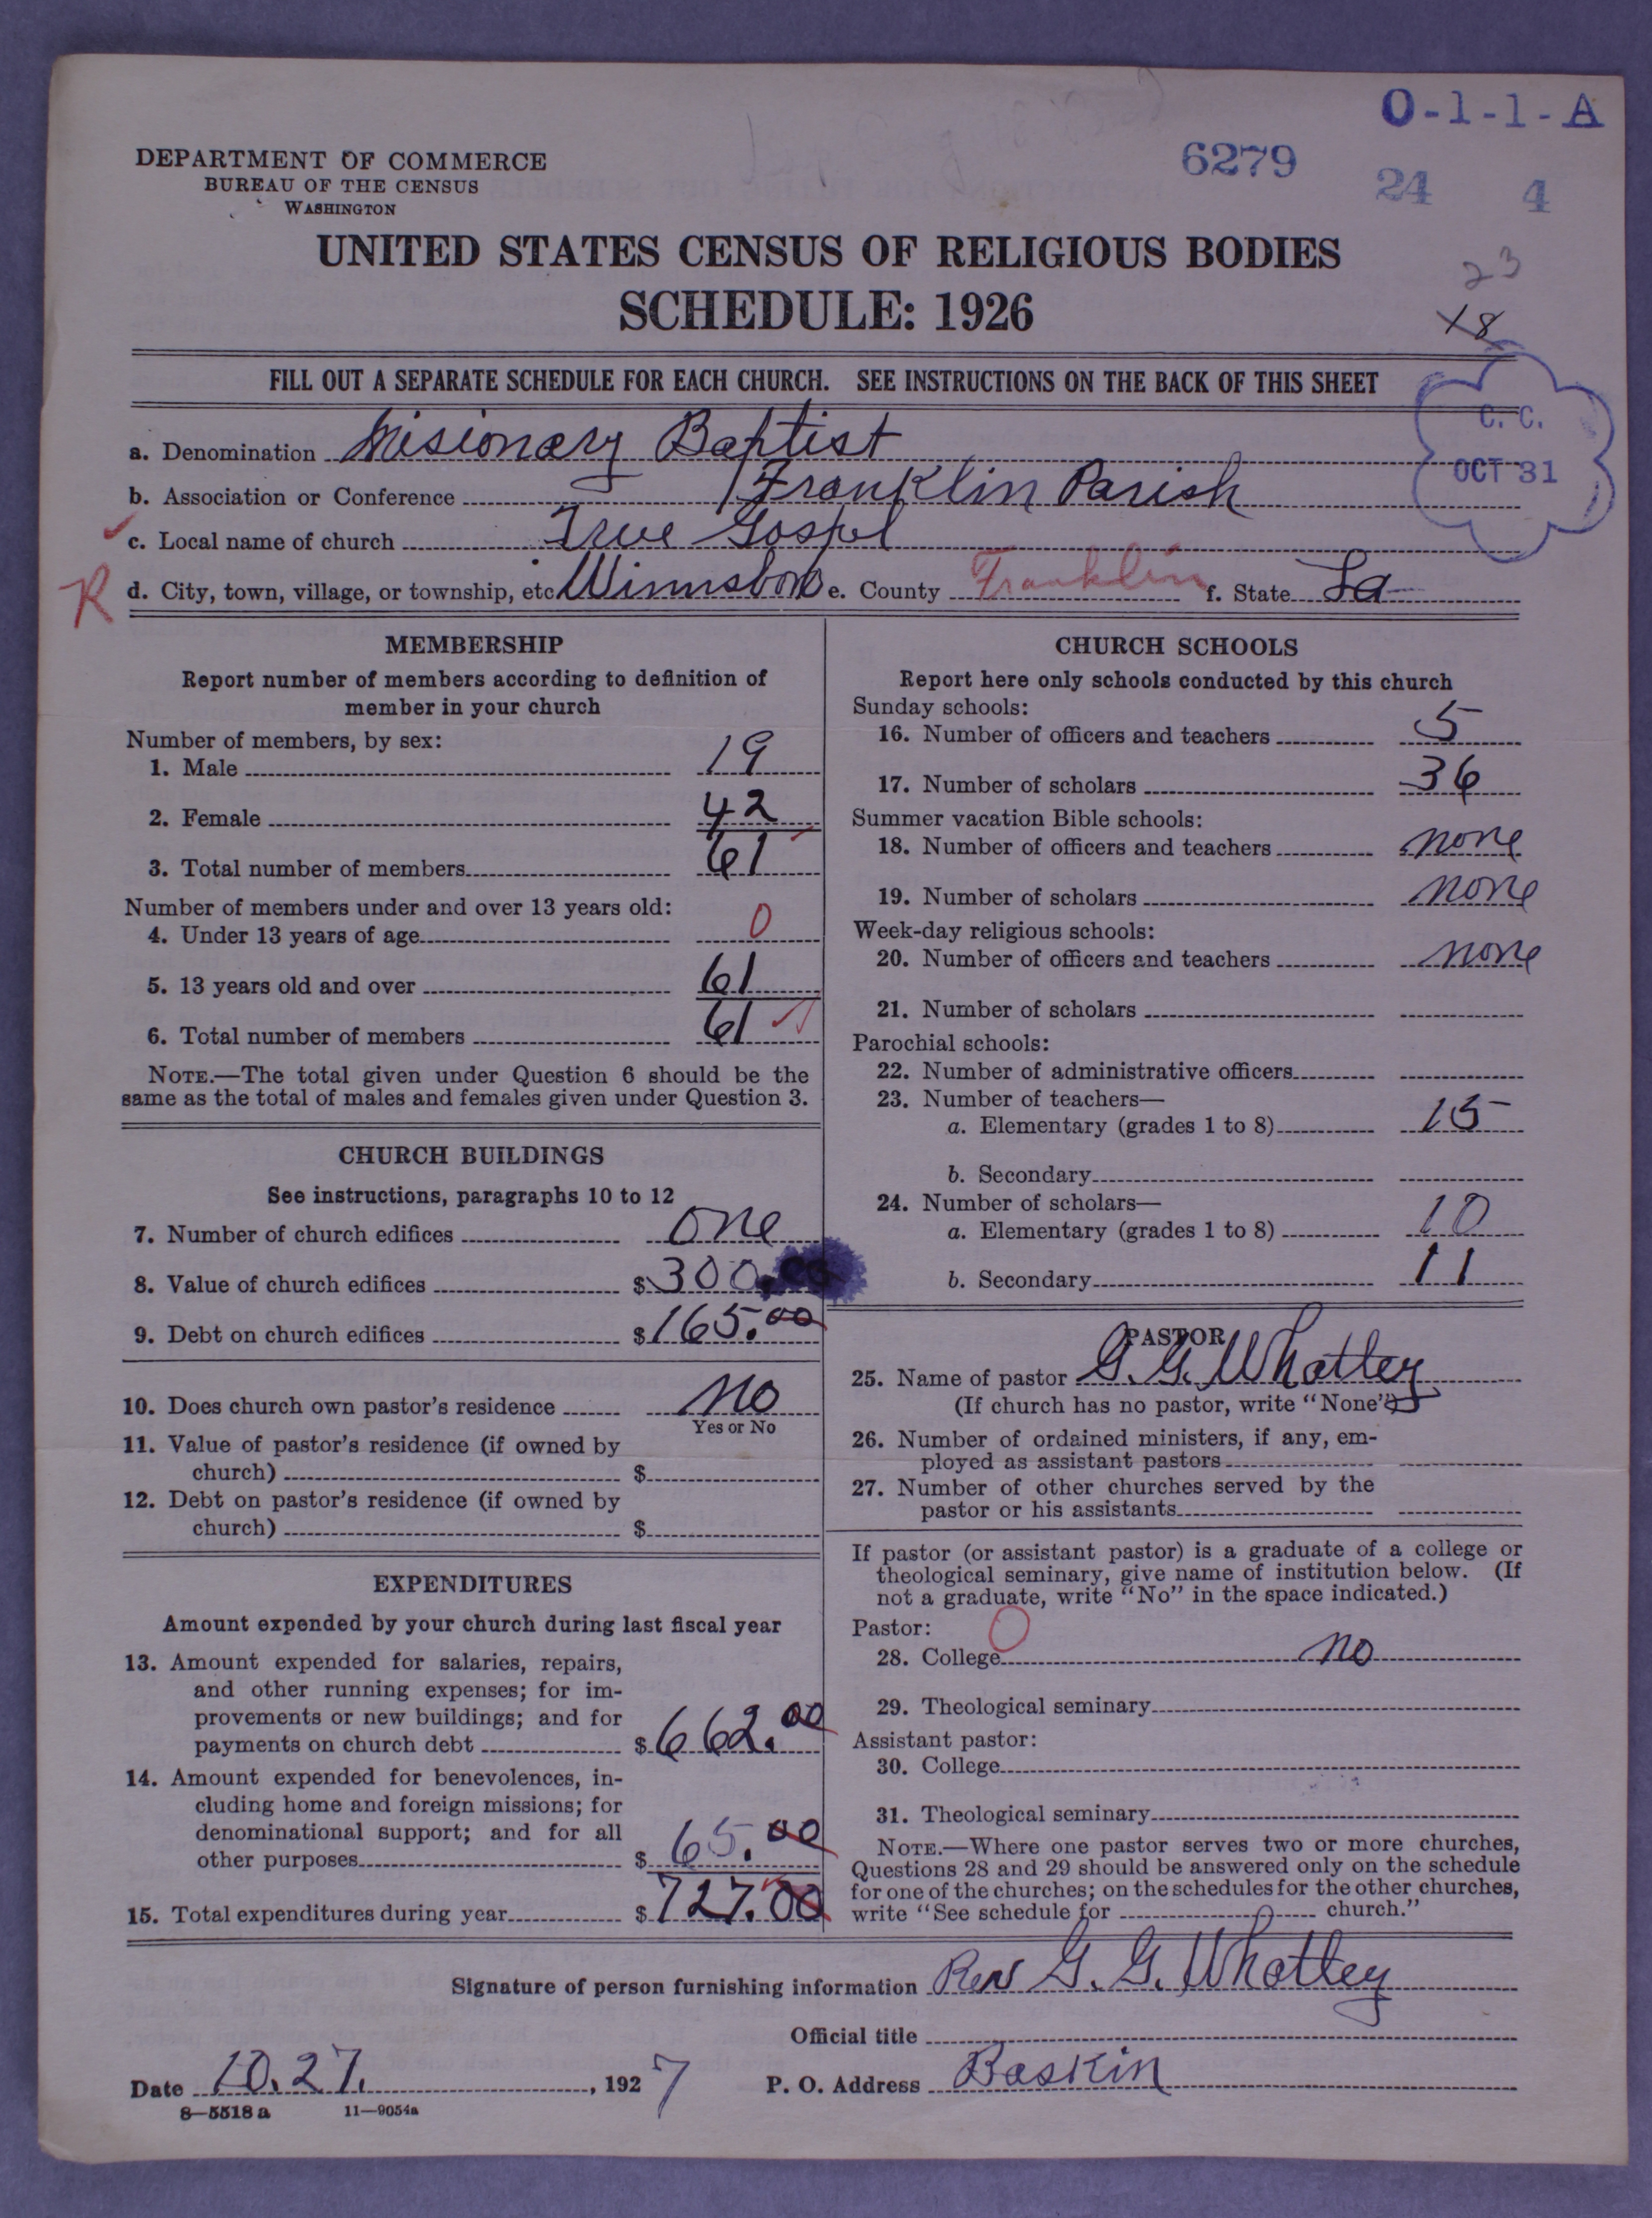 O-1-1-A
DEPARTMENT OF COMMERCE
BUREAU OF THE CENSUS
WASHINGTON
6279
24 4
UNITED STATES CENSUS OF RELIGIOUS BODIES
SCHEDULE: 1926
23
18
FILL OUT A SEPARATE SCHEDULE FOR EACH CHURCH. SEE INSTRUCTIONS ON THE BACK OF THIS SHEET
C. C.
OCT 31
a. Denomination Misionary Baptist
b. Association or Conference Franklin Parish
c. Local name of church True Gospel
R d. City, town, village, or township, etc. Winnsboro e. County Franklin f. State La
MEMBERSHIP
Report number of members according to definition of
member in your church
Number of members, by sex:
1. Male 19
2. Female 42
3. Total number of members 61
Number of members under and over 13 years old:
4. Under 13 years of age 0
5. 13 years old and over 61
6. Total number of members 61
NOTE.—The total given under Question 6 should be the
same as the total of males and females given under Question 3.
CHURCH BUILDINGS
See instructions, paragraphs 10 to 12
7. Number of church edifices one
8. Value of church edifices $300.00
9. Debt on church edifices $165.00
10. Does church own pastor's residence No
Yes or No
11. Value of pastor's residence (if owned by
church) $
12. Debt on pastor's residence (if owned by
church) $
EXPENDITURES
Amount expended by your church during last fiscal year
13. Amount expended for salaries, repairs,
and other running expenses; for im-
provements or new buildings; and for
payments on church debt $662.00
14. Amount expended for benevolences, in-
cluding home and foreign missions; for
denominational support; and for all
other purposes $65.00
15. Total expenditures during year $727.00
CHURCH SCHOOLS
Report here only schools conducted by this church
Sunday schools:
16. Number of officers and teachers 5
17. Number of scholars 36
Summer vacation Bible schools:
18. Number of officers and teachers none
19. Number of scholars none
Week-day religious schools:
20. Number of officers and teachers none
21. Number of scholars
Parochial schools:
22. Number of administrative officers
23. Number of teachers—
a. Elementary (grades 1 to 8) 15
b. Secondary
24. Number of scholars—
a. Elementary (grades 1 to 8) 10
b. Secondary 11
PASTOR
25. Name of pastor G. G. Whatley
(If church has no pastor, write "None")
26. Number of ordained ministers, if any, em-
ployed as assistant pastors
27. Number of other churches served by the
pastor or his assistants
If pastor (or assistant pastor) is a graduate of a college or
theological seminary, give name of institution below. (If
not a graduate, write "No" in the space indicated.)
Pastor: 0
28. College no
29. Theological seminary
Assistant pastor:
30. College
31. Theological seminary
NOTE.—Where one pastor serves two or more churches,
Questions 28 and 29 should be answered only on the schedule
for one of the churches; on the schedules for the other churches,
write "See schedule for church."
Signature of person furnishing information Rev G. G. Whatley
Official title
Date 10.27. , 1927 P. O. Address Baskin
8—5518 a 11—9054a